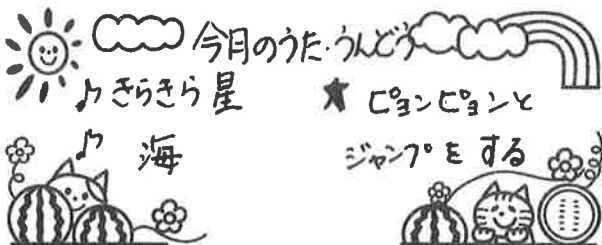 今月のうた・うんどう
♪きらきら星
♪海
★ ピョンピョンと
ジャンプをする